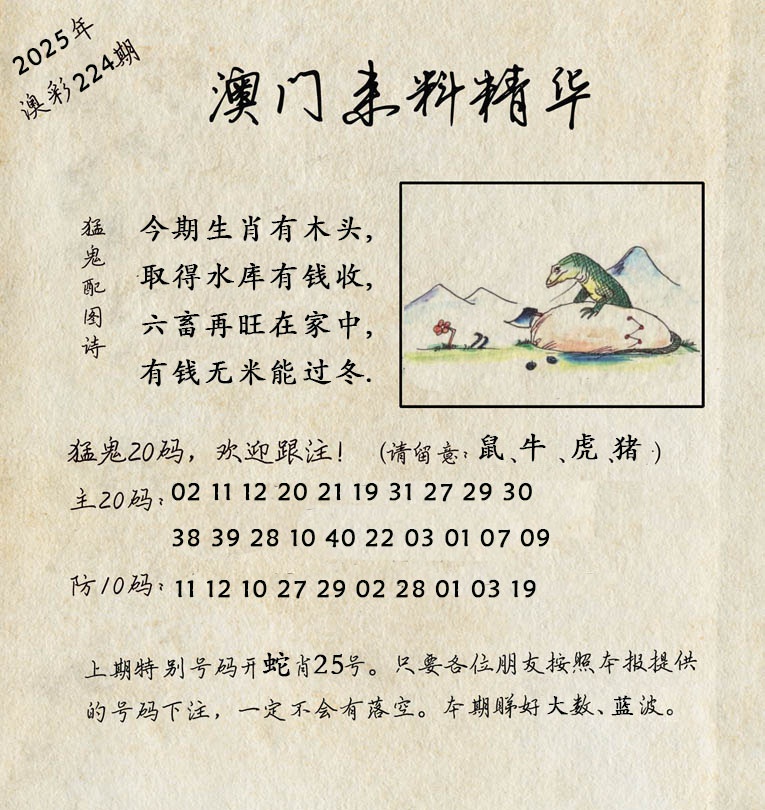 2025年
澳彩224期
澳门来料精华
猛鬼配图诗
今期生肖有木头,
取得水库有钱收,
六畜再旺在家中,
有钱无米能过冬.
猛鬼20码，欢迎跟注！（请留意：鼠、牛、虎、猪）
主20码：02 11 12 20 21 19 31 27 29 30
38 39 28 10 40 22 03 01 07 09
防10码：11 12 10 27 29 02 28 01 03 19
上期特别号码开蛇肖25号。只要各位朋友按照本报提供
的号码下注，一定不会有落空。本期睇好大数、蓝波。